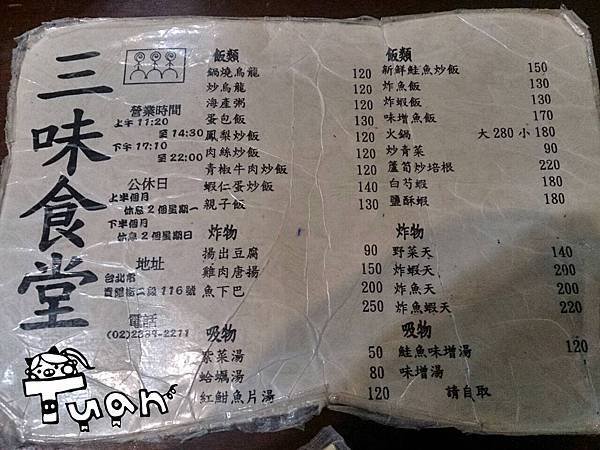 三味食堂
營業時間
上午 11:20
至 14:30
下午 17:10
至 22:00
公休日
上半個月
休息2個星期一
下半個月
休息2個星期日
地址
台北市
貴陽街二段116號
電話
(02)2389-2211
飯類
鍋燒烏龍 120
炒烏龍 120
海產粥 120
蛋包飯 130
鳳梨炒飯 120
肉絲炒飯 120
青椒牛肉炒飯 120
蝦仁蛋炒飯 140
親子飯 130
炸物
揚出豆腐 90
雞肉唐揚 150
魚下巴 200
250
吸物
紫菜湯 50
蛤蠣湯 80
紅魽魚片湯 120
飯類
新鮮鮭魚炒飯 150
炸魚飯 130
炸蝦飯 130
味增魚飯 170
火鍋 大280小180
炒青菜 90
蘆筍炒培根 220
白芍蝦 180
鹽酥蝦 180
炸物
野菜天 140
炸蝦天 290
炸魚天 200
炸魚蝦天 220
吸物
鮭魚味增湯 120
味增湯
請自取
Tuan